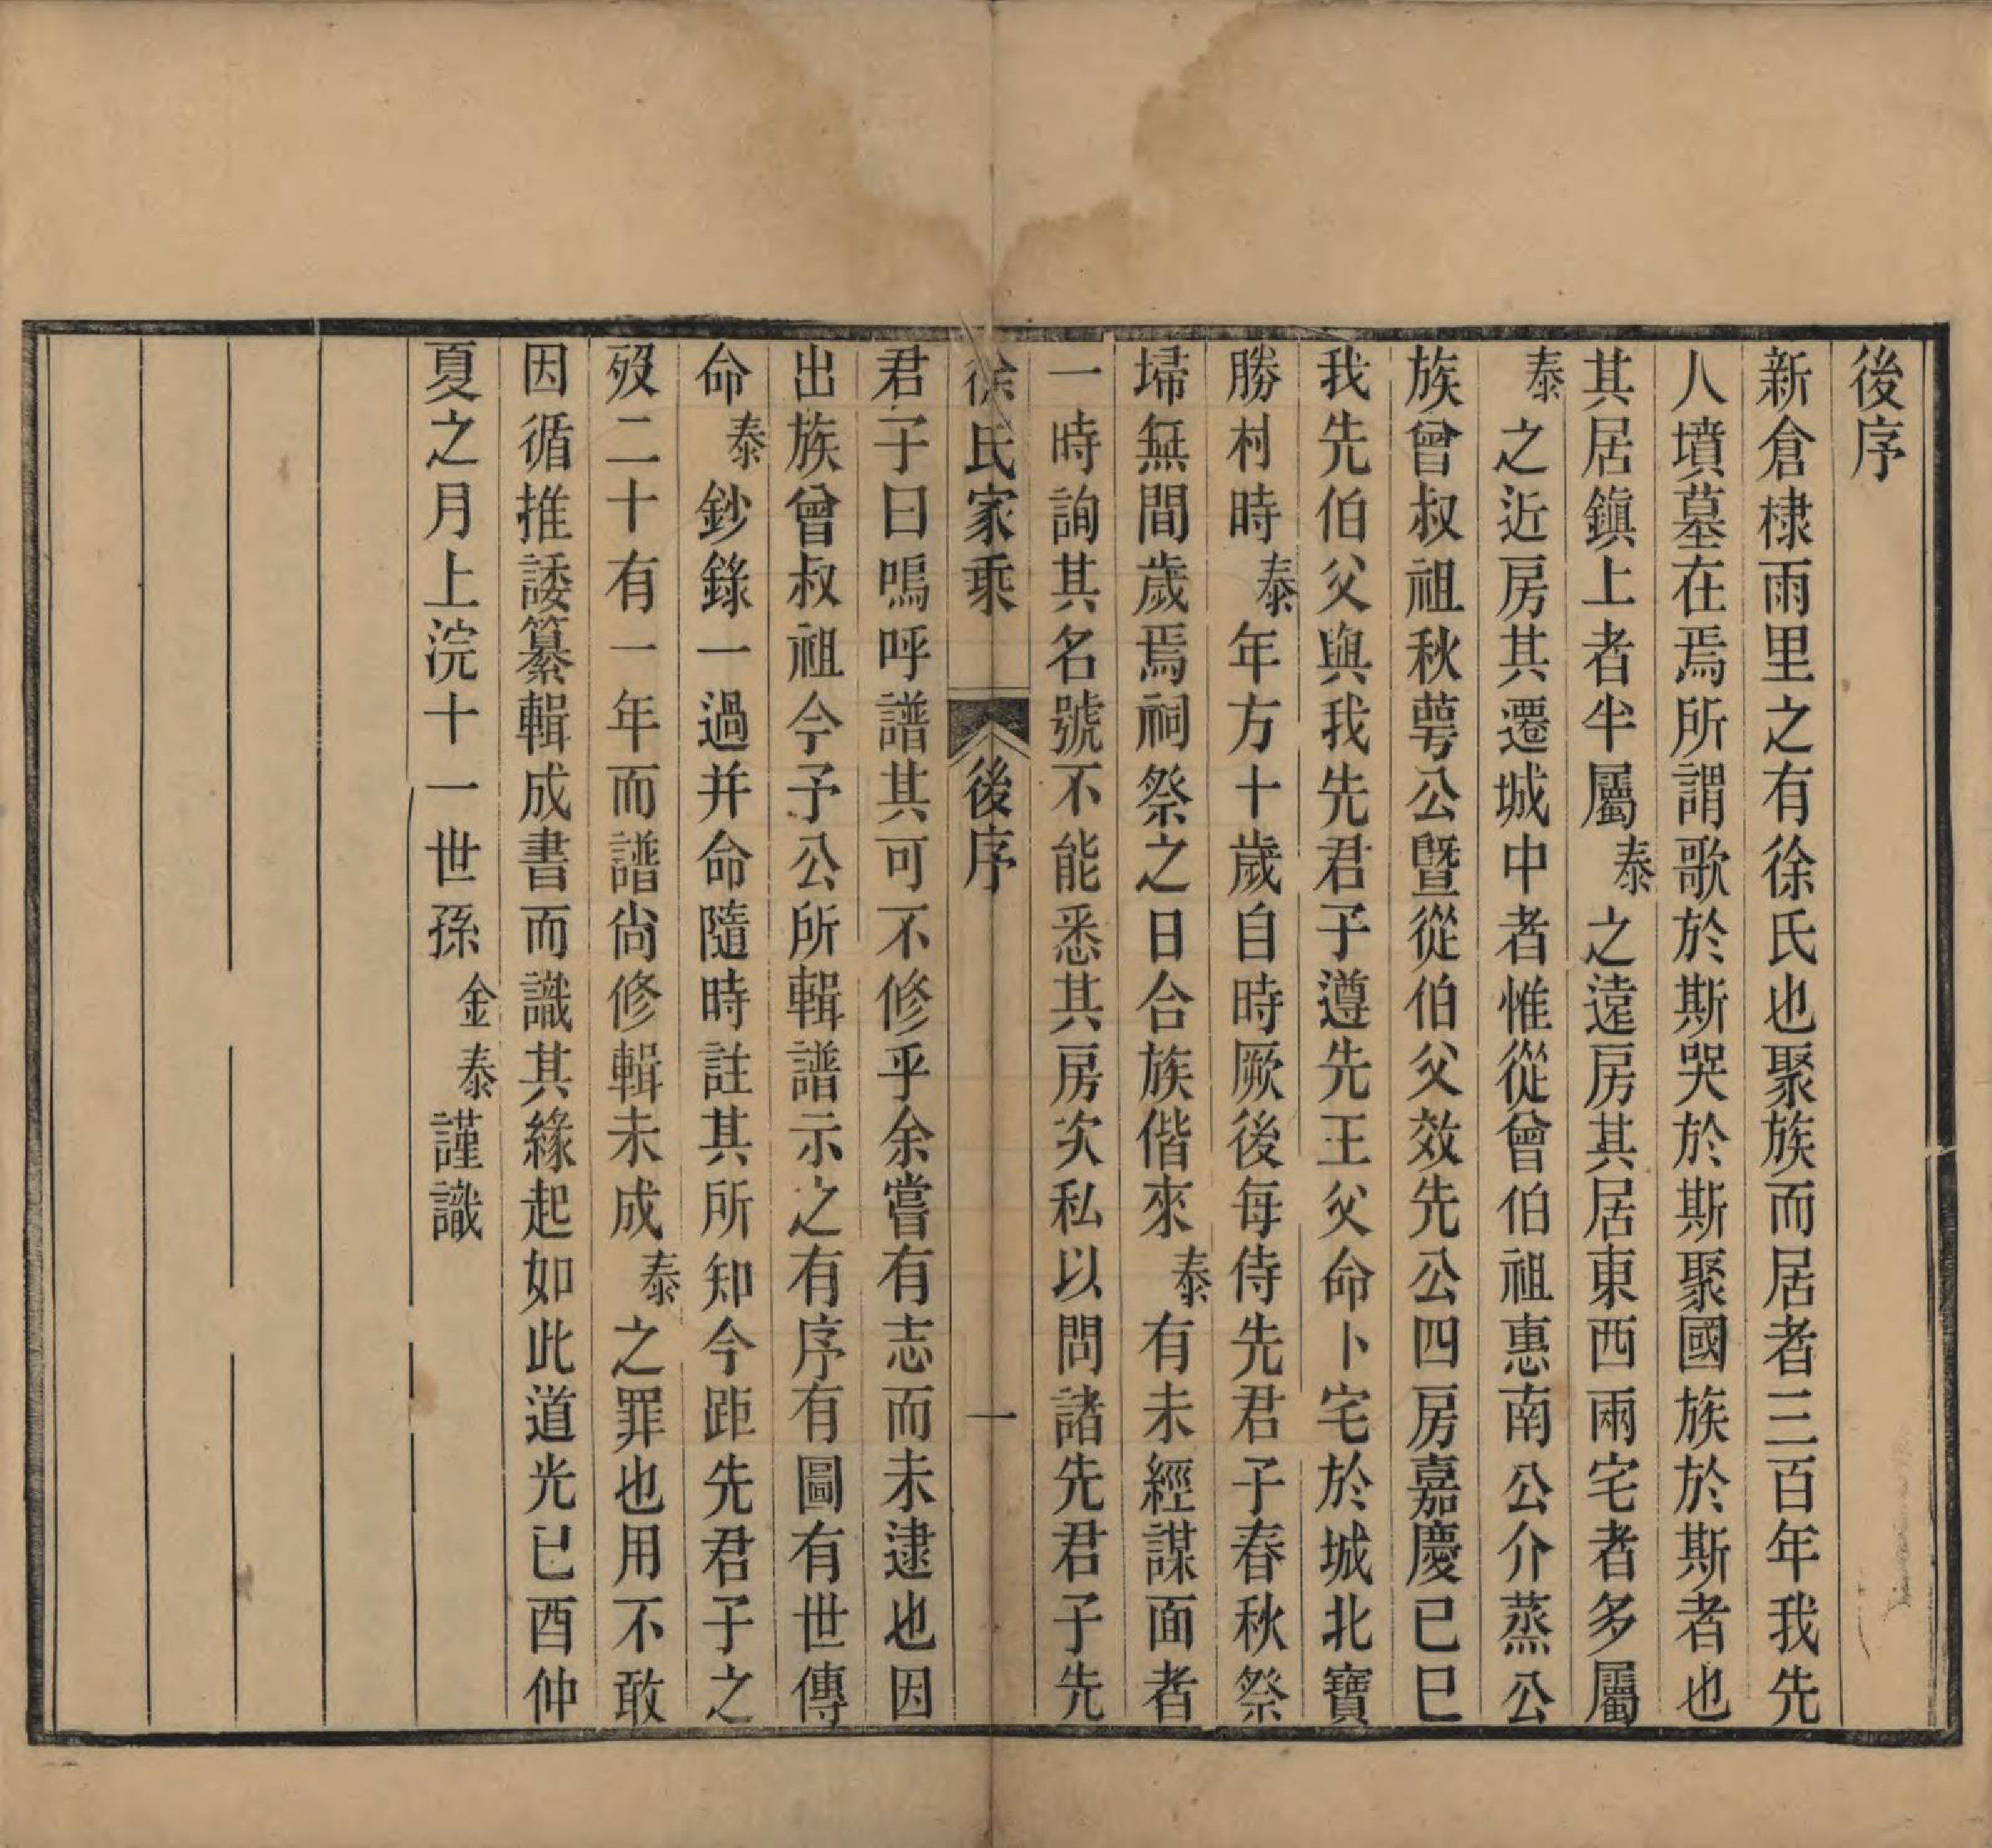 後序
新倉棣雨里之有徐氏也聚族而居者三百年我先
人墳墓在焉所謂歌於斯哭於斯聚國族於斯者也
其居鎮上者半屬泰之遠房其居東西兩宅者多屬
泰之近房其遷城中者惟從曾伯祖惠南公介蒸公
族曾叔祖秋蕚公暨從伯父效先公四房嘉慶已巳
我先伯父與我先君子遵先王父命卜宅於城北寶
勝村時泰年方十歲自時厥後每侍先君子春秋祭
埽無間歲焉祠祭之日合族偕來泰有未經謀面者
一時詢其名號不能悉其房次私以問諸先君子先
徐氏家乘 後序 一
君子曰嗚呼譜其可不修乎余嘗有志而未逮也因
出族曾叔祖今予公所輯譜示之有序有圖有世傳
命泰鈔錄一過并命隨時註其所知今距先君子之
歿二十有一年而譜尙修輯未成泰之罪也用不敢
因循推諉纂輯成書而識其緣起如此道光已酉仲
夏之月上浣十一世孫金泰謹識